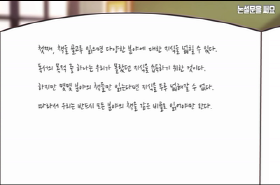 논설문을 써요
첫째, 책을 골고루 읽으면 다양한 분야에 대한 지식을 넓힐 수 있다.
독서의 목적 중 하나는 우리가 몰랐던 지식을 습득하기 위한 것이다.
하지만 몇몇 분야의 책들만 읽는다면 지식을 두루 넓혀갈 수 없다.
따라서 우리는 반드시 모든 분야의 책을 같은 비율로 읽어야만 한다.